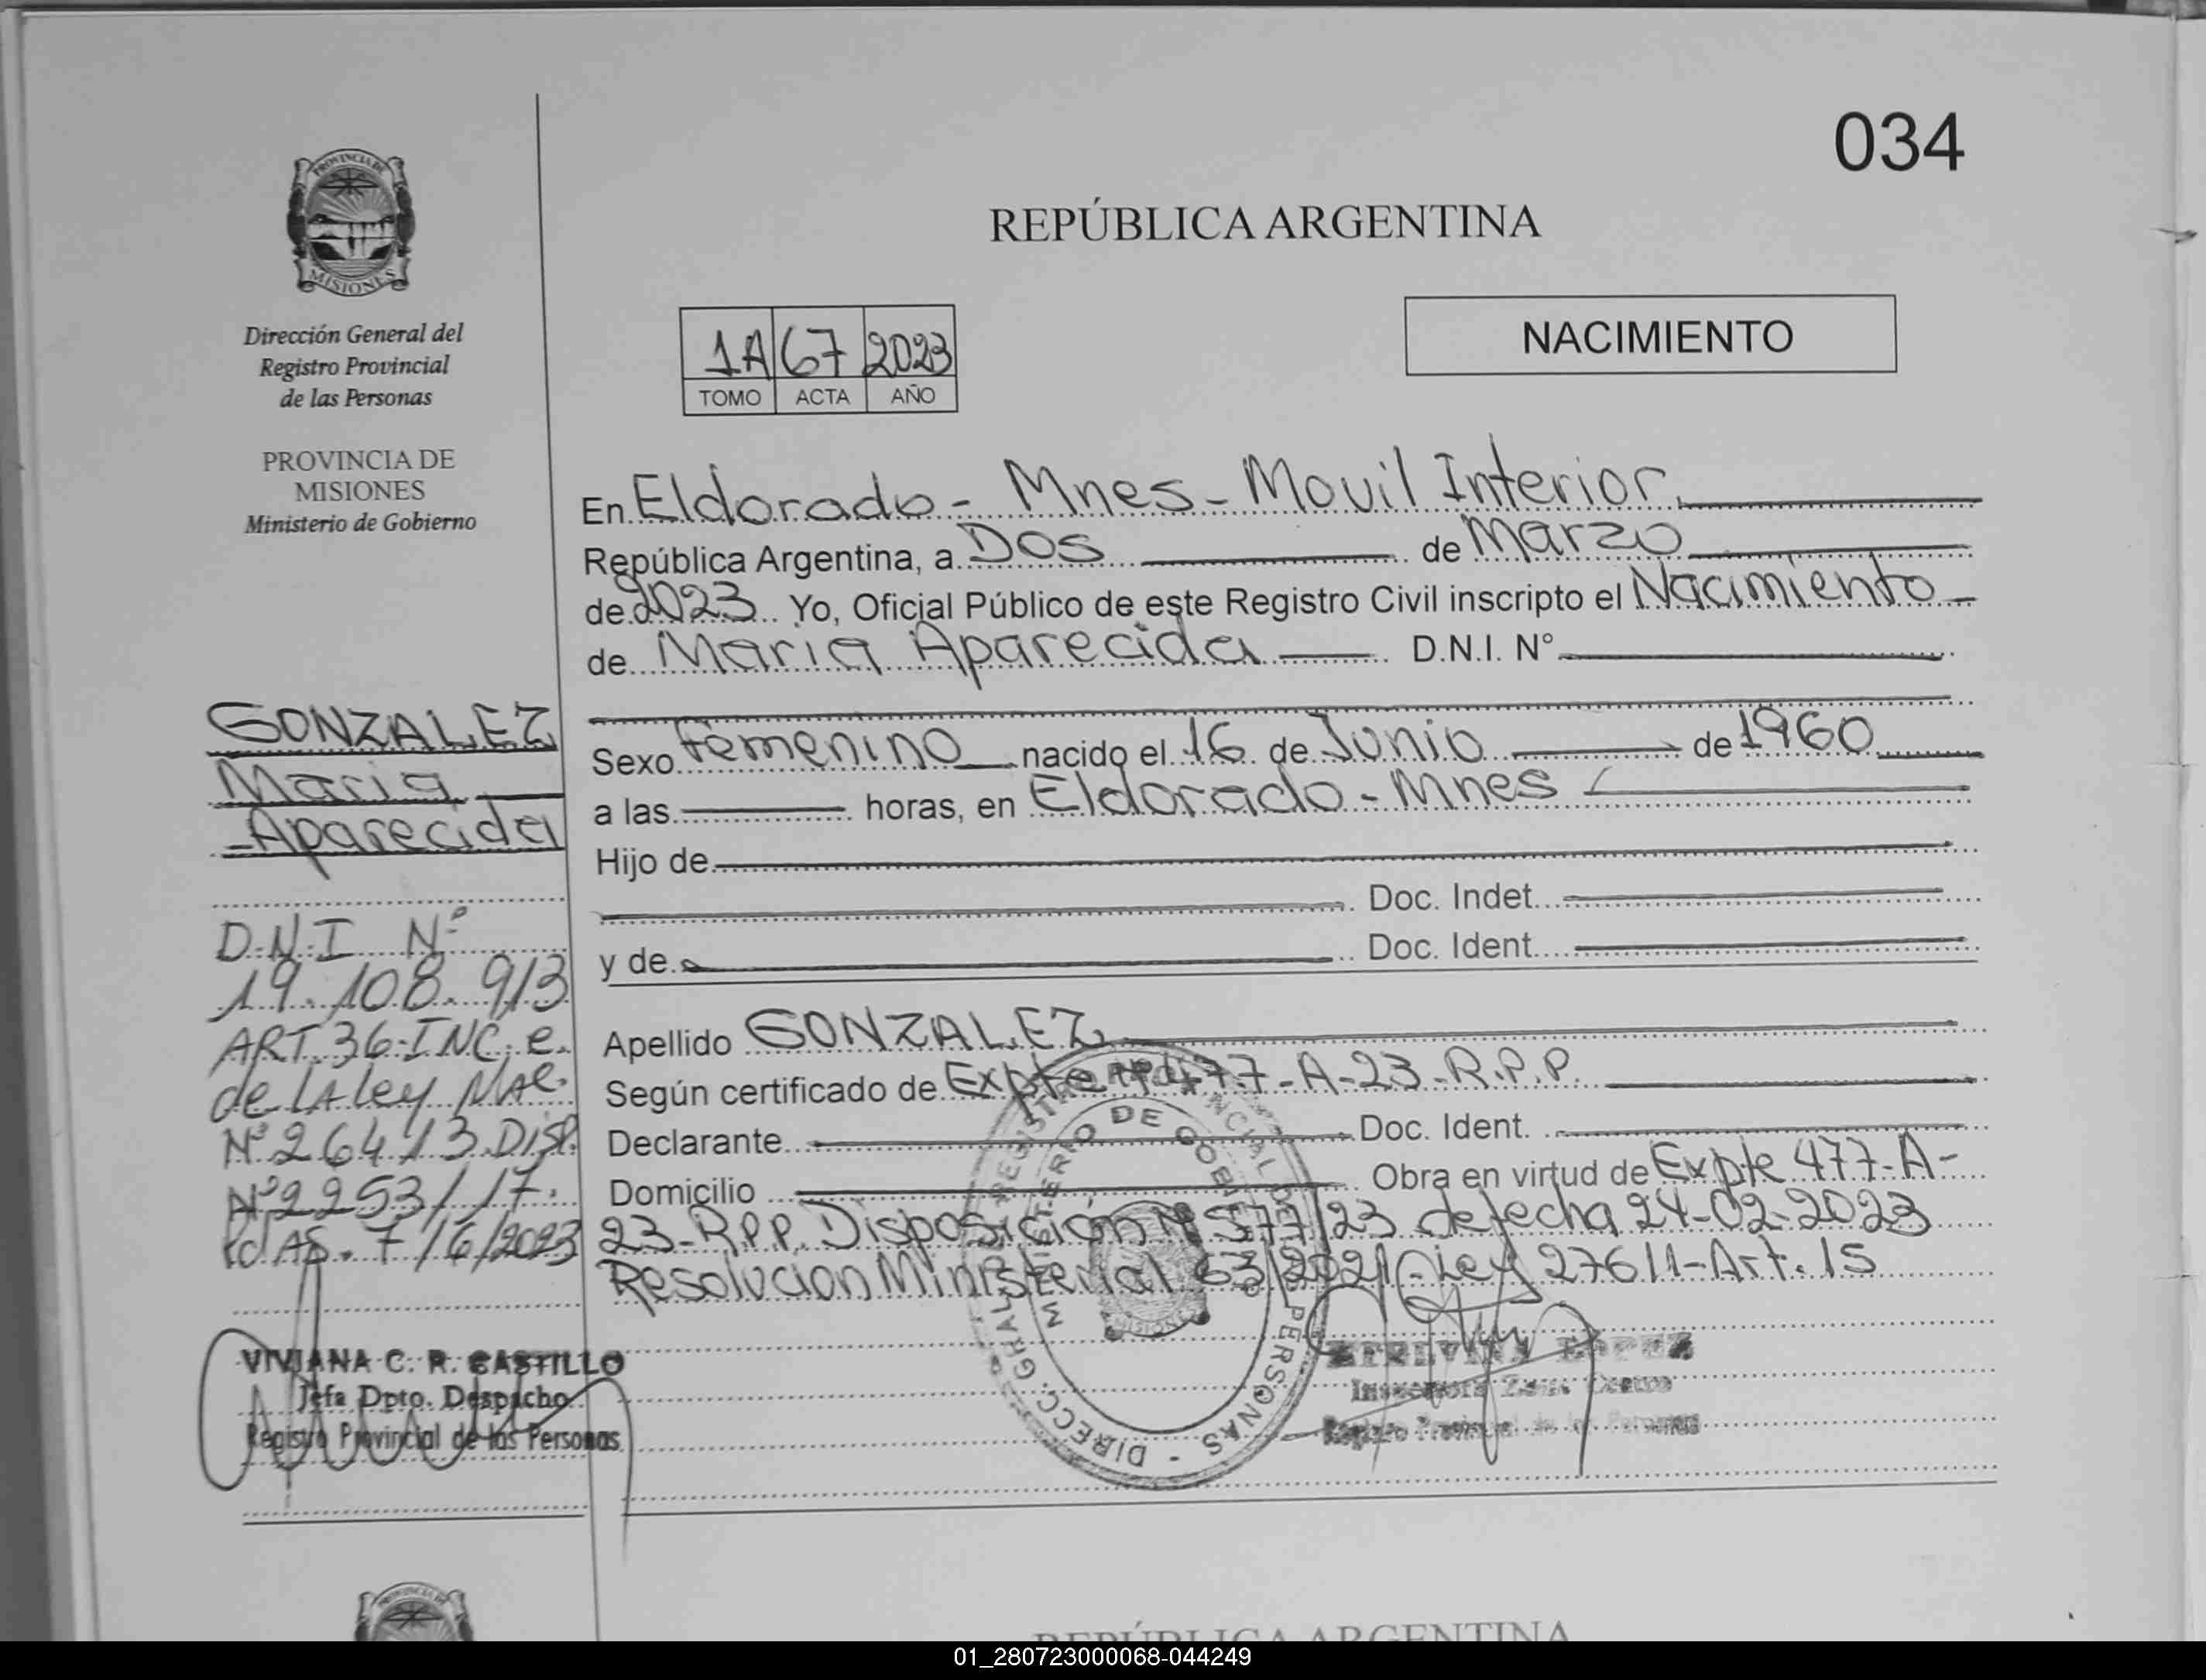 034
PROVINCIA DE
MISIONES
Dirección General del
Registro Provincial
de las Personas
PROVINCIA DE
MISIONES
Ministerio de Gobierno
GONZALEZ
Maria
Aparecida
D.N.I Nº
19.108.913
ART.36-INC.e.
de LA Ley
Nº26413.DISP.
Nº2253/17.
7/6/2023
VIVIANA C. R. CASTILLO
Jefa Dpto. Despacho
Registro Provincial de las Personas
REPÚBLICA ARGENTINA
NACIMIENTO
1A 67 2023
TOMO ACTA AÑO
En Eldorado - Mnes - Movil Interior.
República Argentina, a Dos de Marzo
de 2023 Yo, Oficial Público de este Registro Civil inscripto el Nacimiento
de Maria Aparecida D.N.I. Nº
Sexo Femenino nacido el 16 de Junio de 1960
a las horas, en Eldorado - Mnes
Hijo de
Doc. Indet.
y de Doc. Ident.
Apellido GONZALEZ
Según certificado de Expte Nº 477-A-23-R.P.P.
Declarante Doc. Ident.
Domicilio Obra en virtud de Expte 477-A-
23-R.P.P. Disposición Nº 577/23 de fecha 24-02-2023
Resolucion Ministerial 63/2021-Ley 27611-Art. 15
DIRECC. GRAL. REGISTRO PROVINCIAL DE PERSONAS
MINISTERIO DE GOBIERNO
LOPEZ
Inspectora Zona Centro
Registro Provincial de las Personas
REPÚBLICA ARGENTINA
01_280723000068-044249